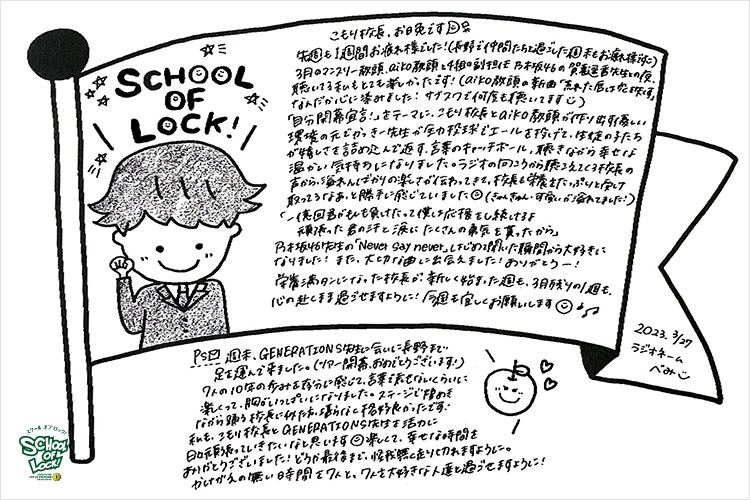 SCHOOL
OF
LOCK!
こもり校長、お晩です
先週も1週間お疲れ様でした!(長野で仲間たちと過ごした週末もお疲れ様!)
3月のマンスリー教頭、aiko教頭と4組の副担任 乃木坂46の賀喜遥香先生との夜、
聴いてる私もとても楽しかったです!(aiko教頭の新曲「荒れた唇は恋を失くす」
なんだか心に染みました!サブスクで何度も聴いてます
「自分開幕宣言!」をテーマに、こもり校長とaiko教頭が作り出す優しい
環境の元でかっきー先生が全力投球でエールを投げて、生徒の子たち
が嬉しさを詰め込んで返す、言葉のキャッチボール。聴きながら幸せな
温かい気持ちになりました。ラジオの向こうから聴こえてくる校長の
声から、溢れんばかりの楽しさが伝わってきて、校長も栄養をたっぷりと受け
取ってるなあ、と勝手に感じていました (きゅんきゅん・可愛いが溢れてました!)
「一億回君がもし負けたって僕は応援をし続けるよ
頑張った君の汗と涙に たくさんの勇気を貰ったから」
乃木坂46先生の「Never say never」、はじめて聞いた瞬間から大好きに
なりました!また、大切な曲に出会えました!ありがとうー!
栄養満タンになった校長が、新しく始まった週も、3月残りの1週も、
心の赴くまま過ごせますように!今週も宜しくお願いします
2023.3/27
ラジオネーム
べみ
PS 週末、GENERATIONS先生に会いに長野まで
足を運んで来ました。(ツアー開幕、おめでとうございます!)
7人の10年の歩みを存分に感じて、言葉で表せないくらいに
楽しくって、胸がいっぱいになりました。ステージで煌めき
ながら踊る校長に仲たち、揺らなく格好良かったです!
私も、こもり校長とGENERATIONS先生を活力に
日々頑張っていきたいなと思います 楽しくて、幸せな時間を
ありがとうございました!どうか最後まで、怪我無く走り切れますように。
かけがえの無い時間を7人と、7人を大好きな人達と過ごせますように!
スクール オブ ロック!
SCHOOL
OF
LOCK!